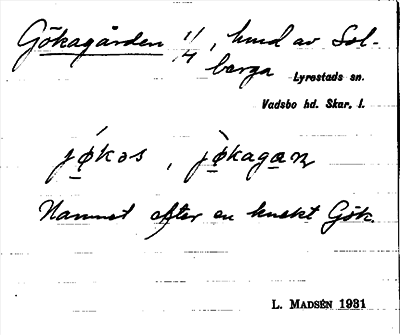 Gökagården 1/4, hmd av Sol-
berga
Lyrestads sn.
Vadsbo hd. Skar. l.
jø̀kəs, jø̀kagaɳ
Namnet efter en knekt Gök.
L. MADSÉN 1931